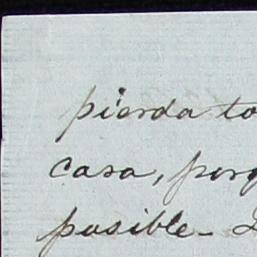 pierda to
casa, porq
posible-